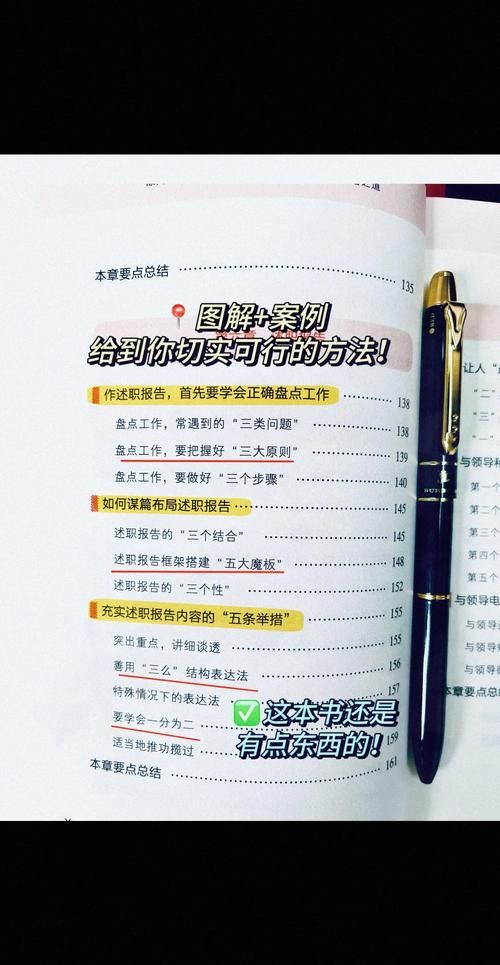 之道
本章要点总结 135
图解+案例
给到你切实可行的方法！
作述职报告，首先要学会正确盘点工作 138
盘点工作，常遇到的“三类问题” 138
盘点工作，要把握好“三大原则” 139
盘点工作，要做好“三个步骤” 140
如何谋篇布局述职报告 145
述职报告的“三个结合” 145
述职报告框架搭建“五大魔板” 148
述职报告的“三个性” 152
充实述职报告内容的“五条举措” 155
突出重点，讲细谈透 155
善用“三么”结构表达法 156
特殊情况下的表达法 157
要学会一分为二
适当地推功揽过 159
本章要点总结 161
✅这本书还是
有点东西的！
让人“
“二”
“三”
“一”
与领导和
第一个
第二个
第三个
第四个
第五个
与领导电
与领导
与领导
与领导
本章要点总结